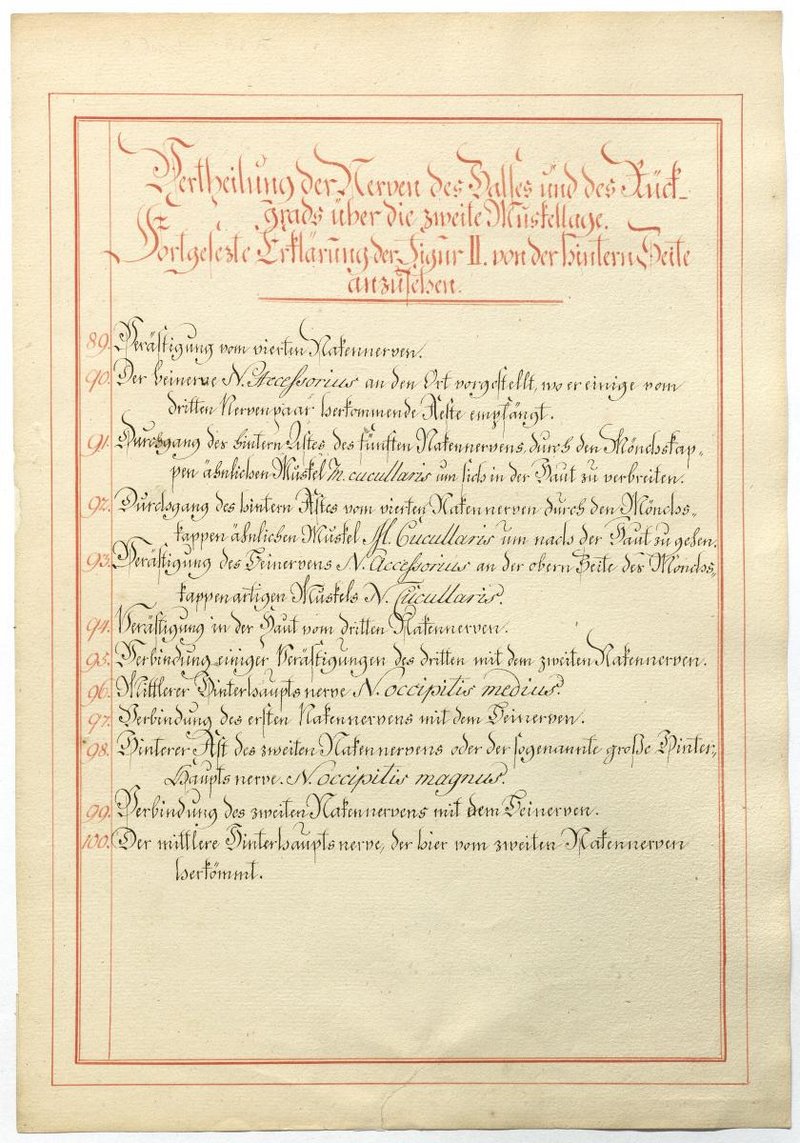 Vertheilung der Nerven des Halses und des Rück-
grads über die zweite Muskellage.
Fortgesezte Erklärung der Figur II. von der hintern Seite
anzusehen.
89. Verästigung vom vierten Nakennerven.
90. Der Beinerve N. Accessorius an den Ort vorgestellt, wo er einige vom
dritten Nervenpaar herkommende Aeste empfängt.
91. Durchgang des hintern Astes des fünften Nakennervens, durch den Mönchskap-
pen ähnlichen Muskel M. cucullaris um sich in der Haut zu verbreiten.
92. Durchgang des hintern Astes vom vierten Nakennerven durch den Mönchs-
kappen ähnlichen Muskel M. Cucullaris um nach der Haut zu gehen.
93. Verästigung des Beinervens N. Accessorius an der obern Seite des Mönchs-
kappenartigen Muskels N. Cucullaris.
94. Verästigung in der Haut vom dritten Nakennerven.
95. Verbindung einiger Verästigungen des dritten mit dem zweiten Nakennerven.
96. Mittlerer Hinterhauptsnerve N. occipitis medius.
97. Verbindung des ersten Nakennervens mit dem Beinerven.
98. Hinterer Ast des zweiten Nakennervens oder der sogenannte große Hinter-
hauptsnerve. N. occipitis magnus.
99. Verbindung des zweiten Nakennervens mit dem Beinerven.
100. Der mittlere Hinterhauptsnerve, der hier vom zweiten Nakennerven
herkömmt.